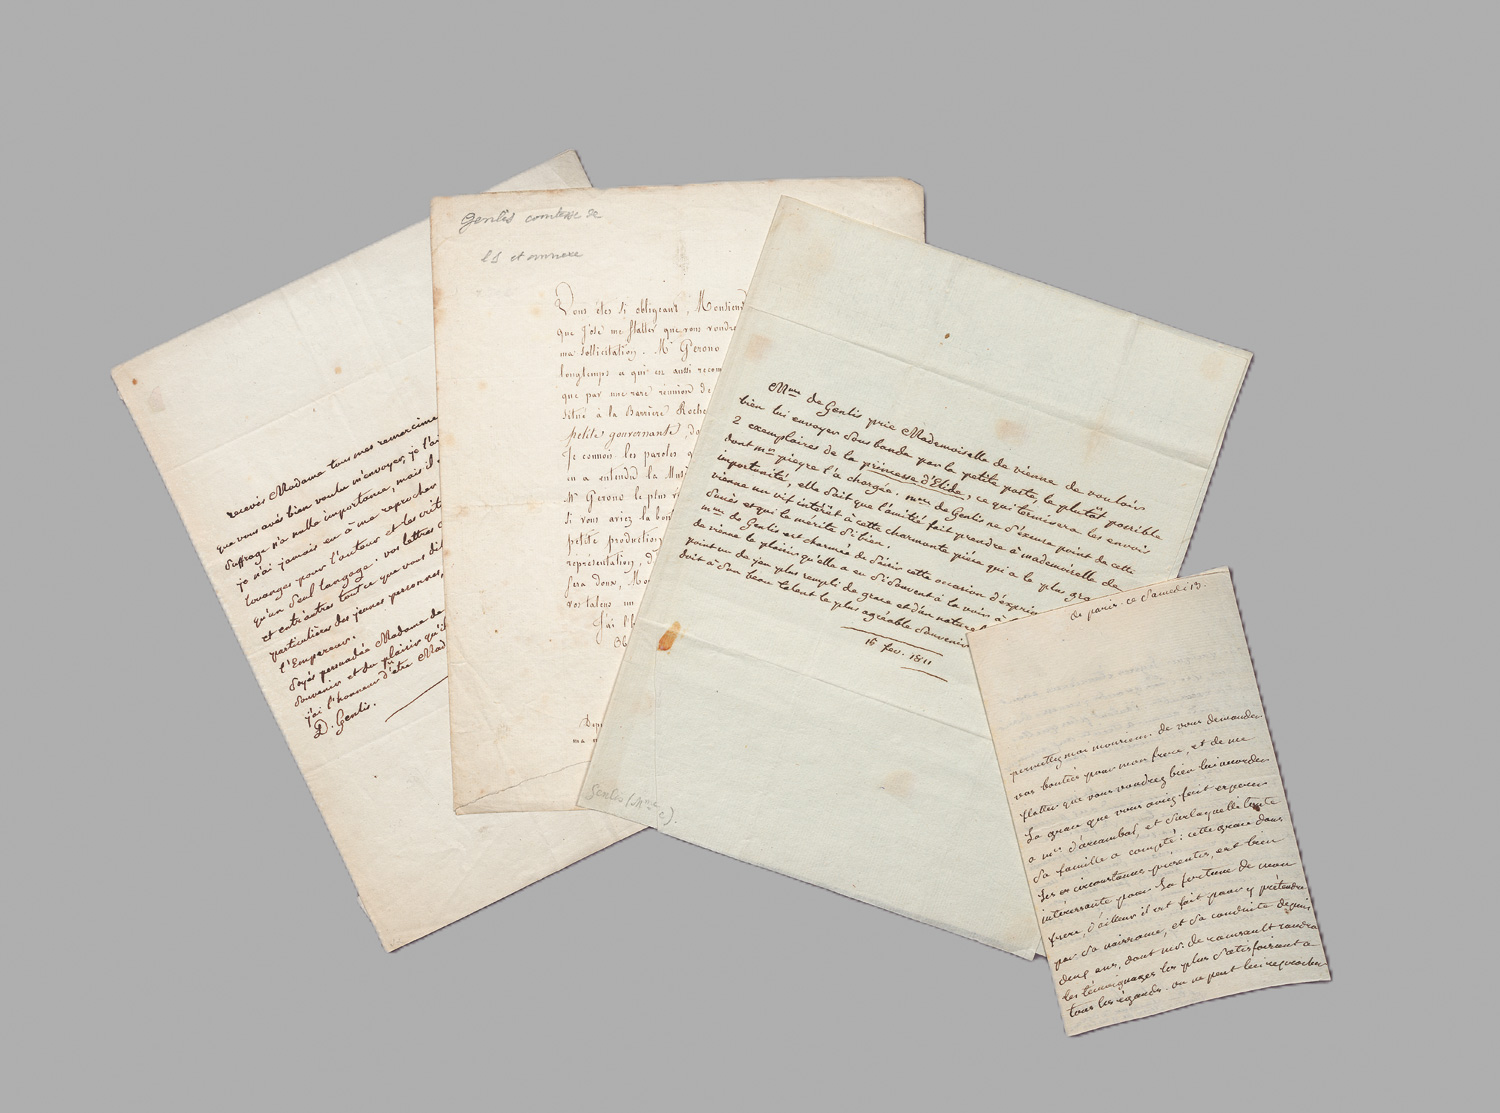 recevés Madame tous mes remercime
que vous avés bien voulu m'envoyer, je l'a
suffrage n'a nulle importance, mais il
je n'ai jamais eu à me reprocher
louanges pour l'auteur et les crit
qu'un seul langage. vos lettres
et entr'autres tout ce que vous di
particulière des jeunes personnes,
l'Empereur.
soyés persuadée Madame de
souvenir et du plaisir qu'il
j'ai l'honneur d'être Mad
D. Genlis.
Genlis comtesse de
LS et annexe
Vous êtes si obligeant, Monsieur
que j'ose me flatter que vous voudre
ma sollicitation. Mr Gerono
longtemps a qui est aussi recom
que par une rare réunion de
situé à la Barrière Roche
petite gouvernante, da
Je connois les paroles q
en a entendu la Musi
Mr Gerono le plus v
si vous aviez la bon
petite production
représentation, d
sera doux, Mo
vos talens un
j'ai l'h
Dep
ma m
Mme de Genlis prie Mademoiselle de vienne de vouloir
bien lui envoyer sous bande par la petite poste, le plutôt possible
2 exemplaires de la princesse d'Elide, ce qui terminera les envois
dont mr pieyre l'a chargée. mme de Genlis ne s'excuse point de cette
importunité, elle sait que l'amitié fait prendre à mademoiselle de
vienne un vif intérêt à cette charmante pièce qui a le plus gra
succès et qui le mérite si bien.
mme de Genlis est charmée de saisir cette occasion d'exprim
de vienne le plaisir qu'elle a eu si souvent à la voir à
point un de jeu plus rempli de grace et d'un naturel
doit à son beau talent le plus agréable souvenir
15 fev. 1811
Genlis (Mme
c).
de paris. ce samedi 13.
permettez moi monsieur de vous demander
vos bontés pour mon frere, et de me
flatter que vous voudrez bien lui accorder
la grace que vous aviez fait esperer
a mr. d'arcambal, et sur laquelle toute
sa famille a compté: cette grace dans
les circonstances présentes, est bien
intéressante pour la fortune de mon
frere, d'ailleur il est fait pour y prétendre
par sa naissance, et sa conduite depuis
deux ans, dont mr. de rainsault rendra
les témoignages les plus satisfaisant a
tous les égards. on ne peut lui reprocher